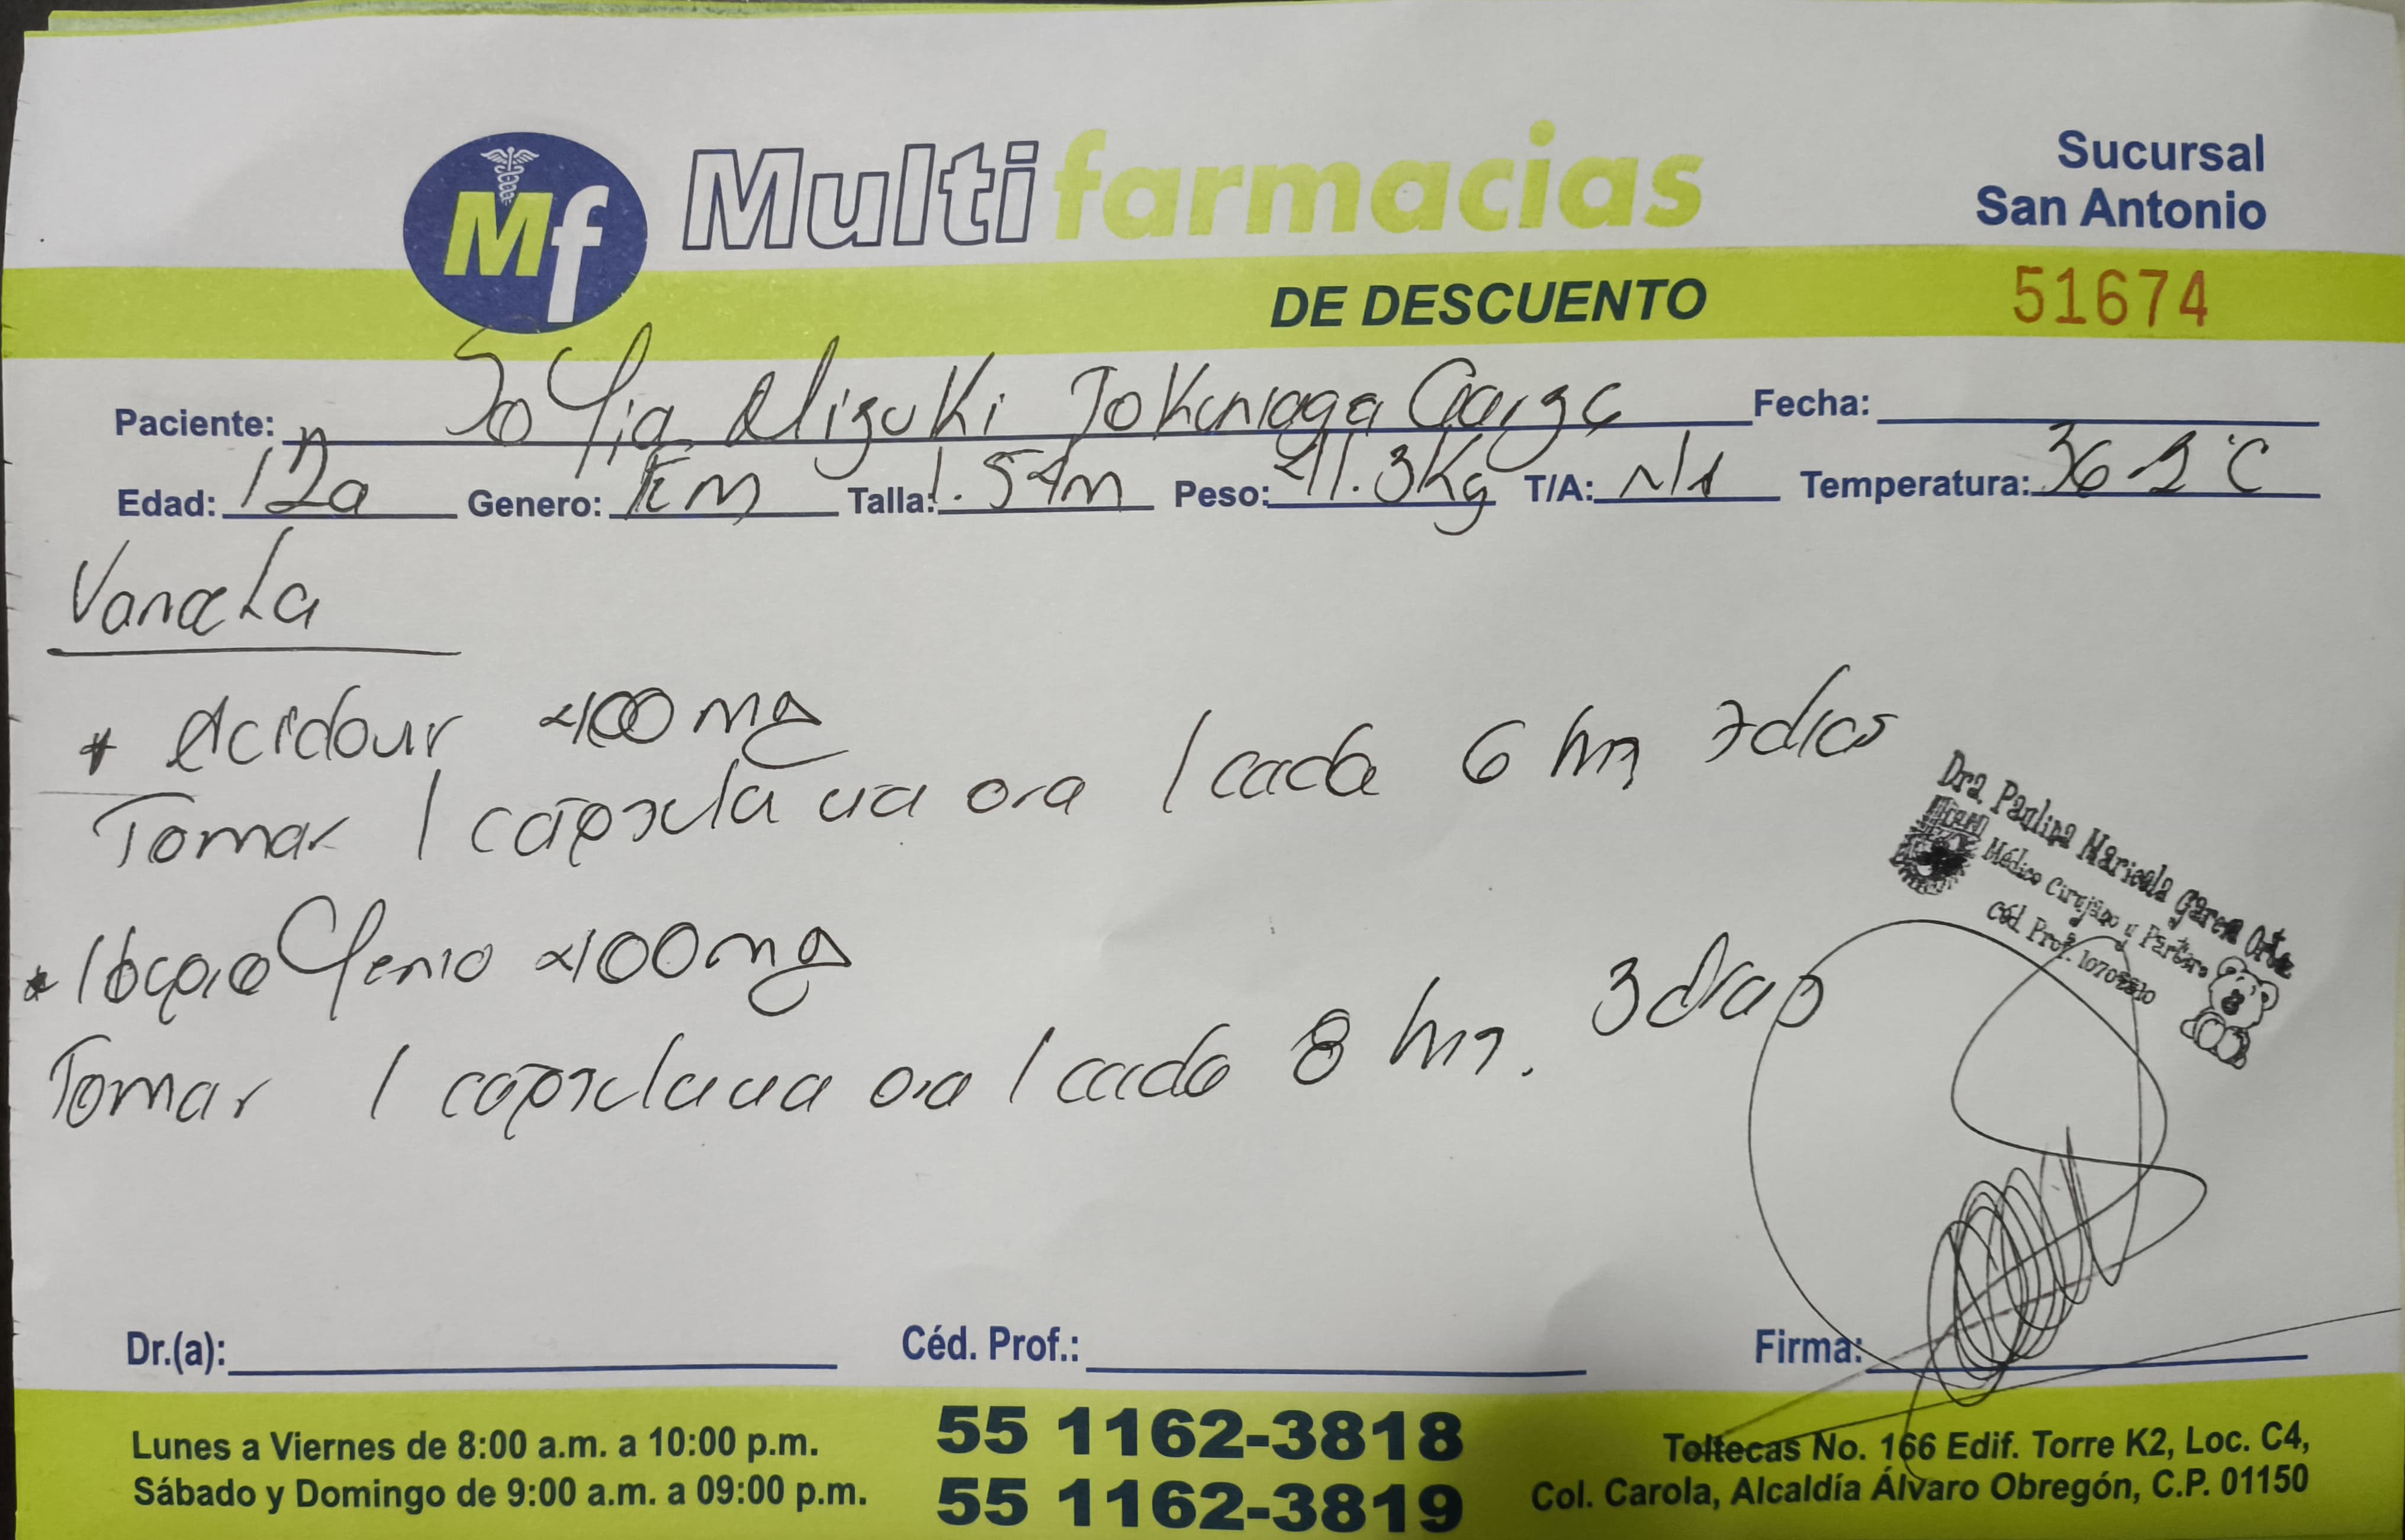 Mf Multifarmacias
DE DESCUENTO
Sucursal
San Antonio
51674
Paciente: Sofia Mizuki Tokunaga Garza Fecha:
Edad: 12a Genero: Fem Talla: 1.54m Peso: 41.3Kg T/A: N/A Temperatura: 36.2°C
Varicela
* Aciclovir 400 mg
Tomar 1 capsula via oral cada 6 hrs 7 dias
* Ibuprofeno 400 mg
Tomar 1 capsula via oral cada 8 hrs. 3 dias
Dra. Paulina Maricela
Médico Cirujano y Partero
Céd. Prof.
Dr.(a): Céd. Prof.: Firma:
Lunes a Viernes de 8:00 a.m. a 10:00 p.m.
Sábado y Domingo de 9:00 a.m. a 09:00 p.m.
55 1162-3818
55 1162-3819
Toltecas No. 166 Edif. Torre K2, Loc. C4,
Col. Carola, Alcaldía Álvaro Obregón, C.P. 01150